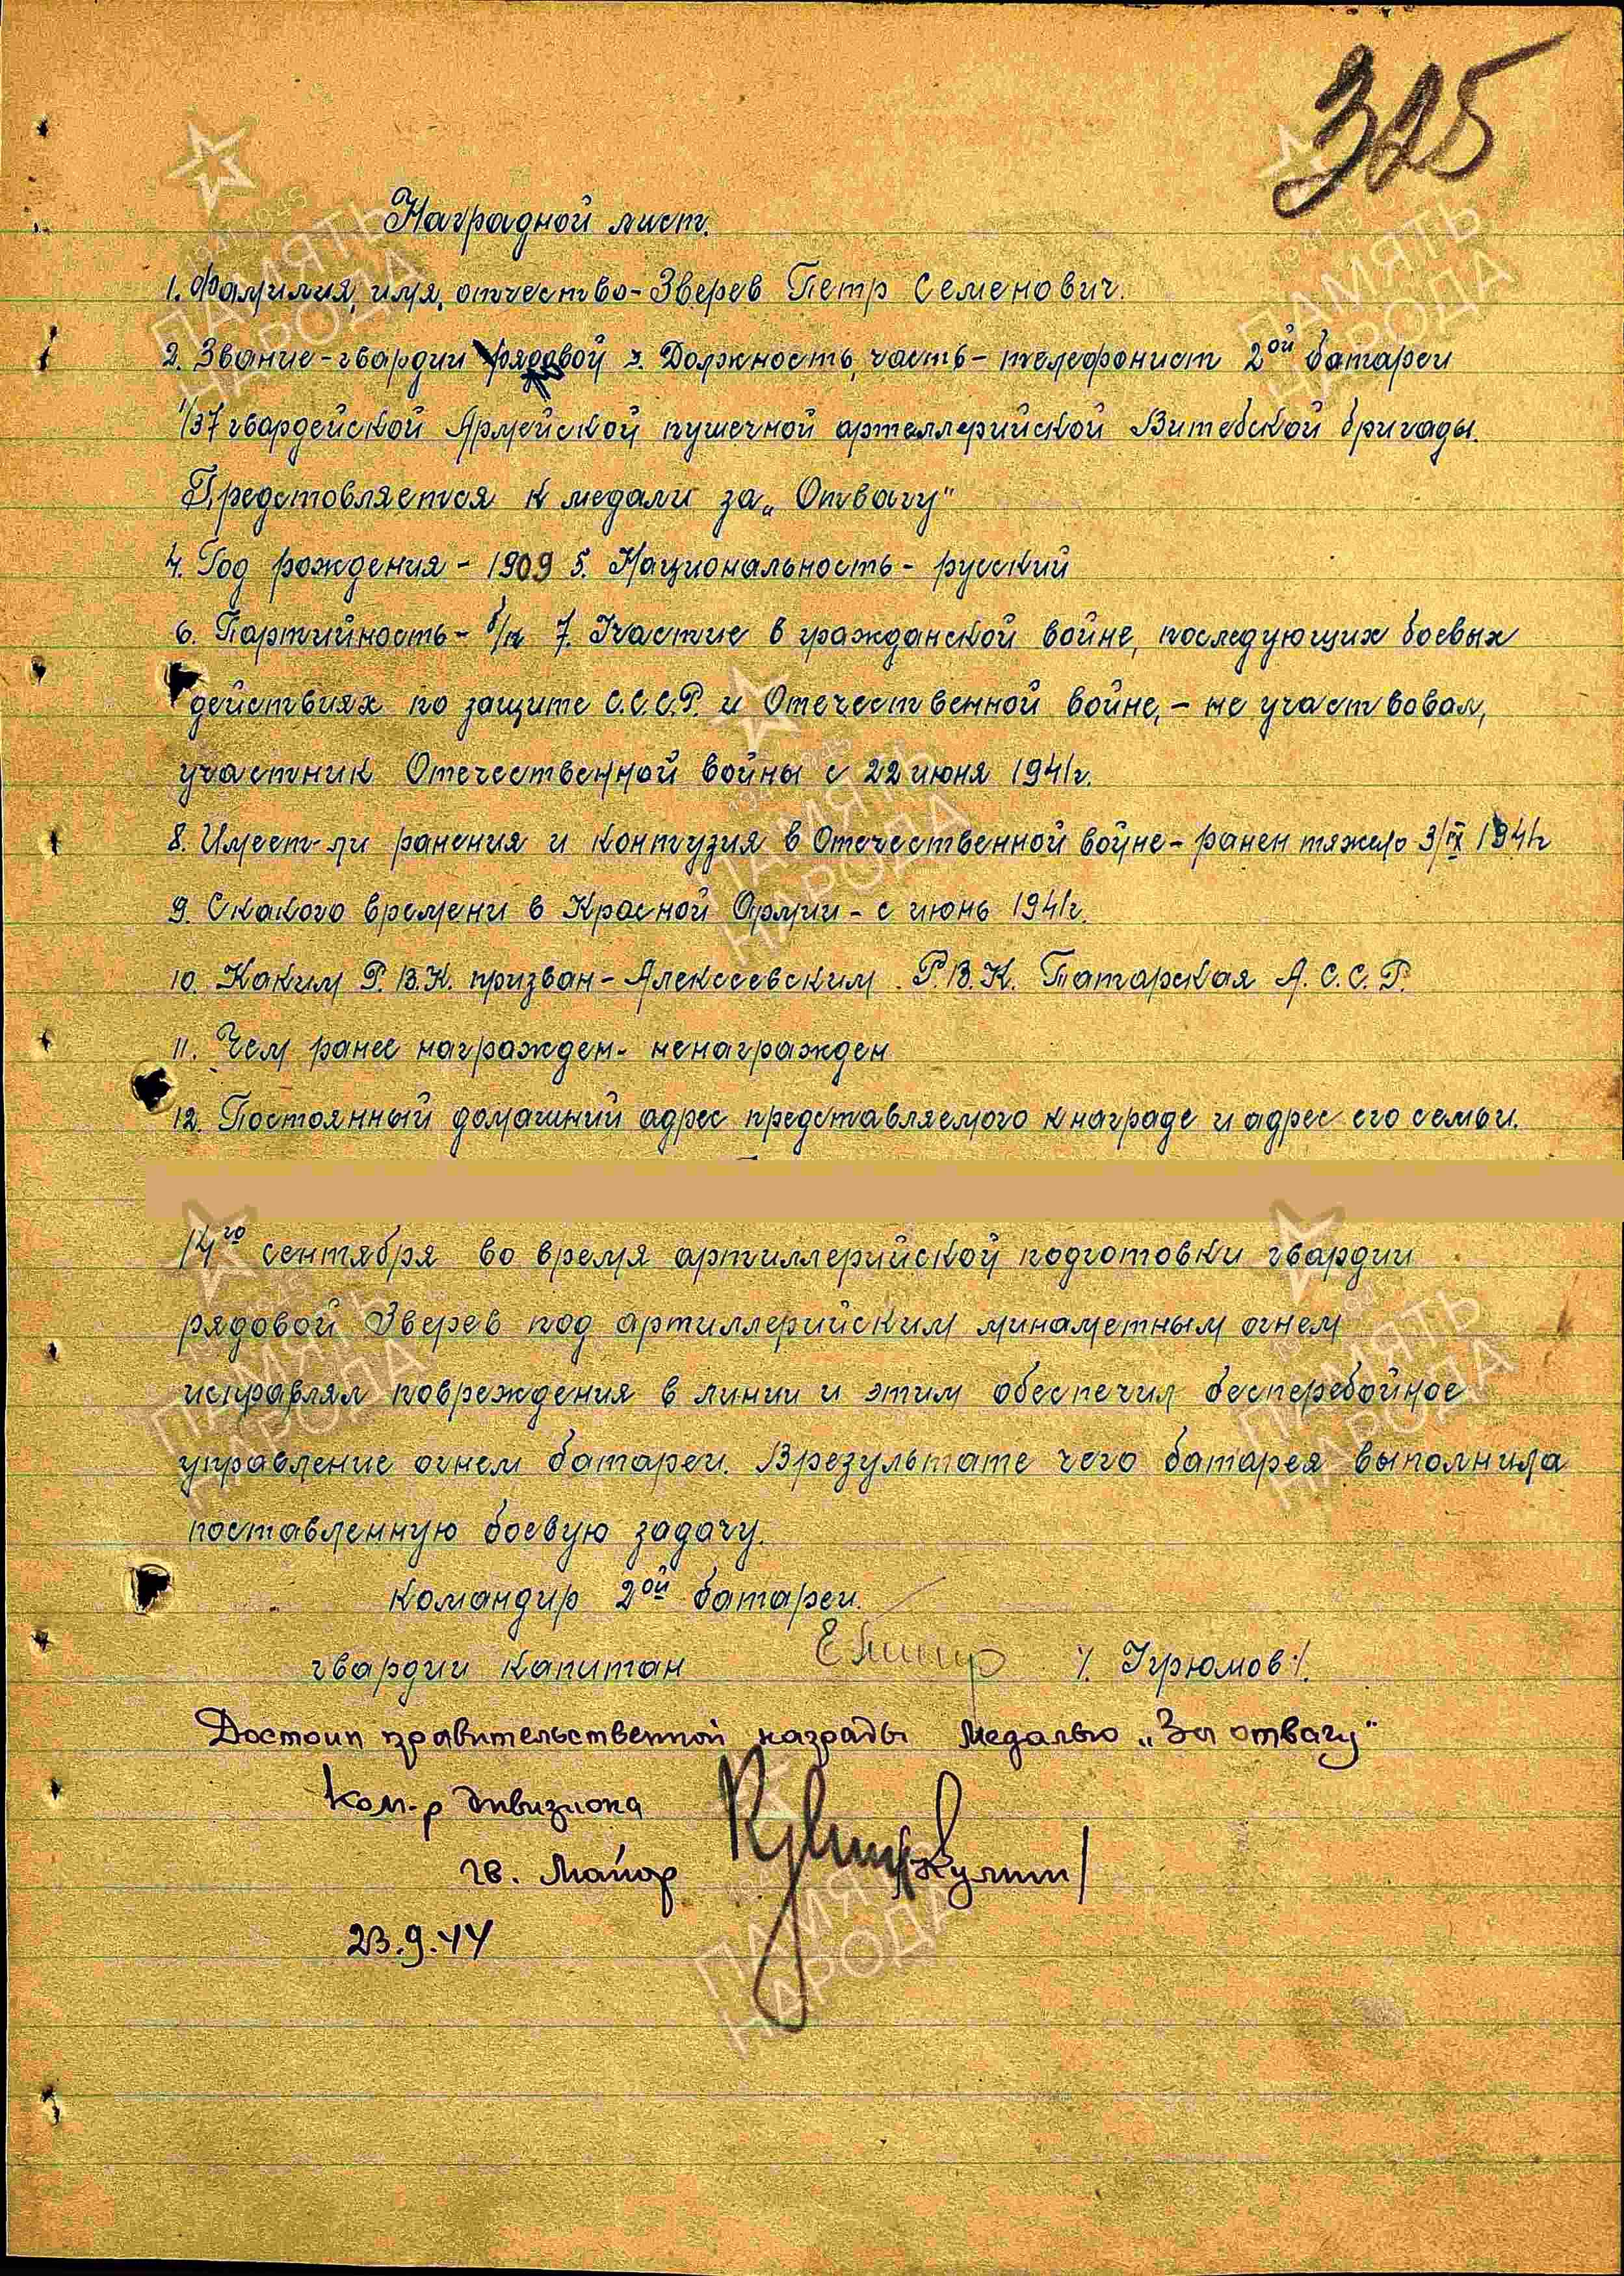 325
Наградной лист.
1. Фамилия, имя, отчество - Зверев Петр Семенович.
2. Звание - гвардии рядовой 3. Должность, часть - телефонист 2ой батареи
1/37 гвардейской Армейской пушечной артеллерийской Витебской бригады.
Предстовляется к медали за „Отвагу"
4. Год рождения - 1909 5. Национальность - русский
6. Партийность - б/п 7. Участие в гражданской войне, последующих боевых
действиях по защите С.С.С.Р. и Отечественной войне, - не участвовал,
участник Отечественной войны с 22 июня 1941г.
8. Имеет-ли ранения и контузия в Отечественной войне - ранен тяжело 3/IX 1941г
9. Скакого времени в Красной Армии - с июнь 1941г.
10. Каким Р.В.К. призван - Алексеевским Р.В.К. Татарская А.С.С.Р.
11. Чем ранее награжден - ненагражден
12. Постоянный домашний адрес представляемого к награде и адрес его семьи.
14го сентября во время артиллерийской подготовки гвардии
рядовой Зверев под артиллерийским минаметным огнем
исправлял повреждения в линии и этим обеспечил бесперебойное
управление огнем батареи. Врезультате чего батарея выполнила
поставленную боевую задачу.
Командир 2ой батареи.
гвардии капитан /. Угрюмов ./.
Достоин правительственной награды Медалью „За отвагу"
Ком-р дивизиона
гв. Майор /Кулит/
23.9.44
1941-1945
ПАМЯТЬ
НАРОДА